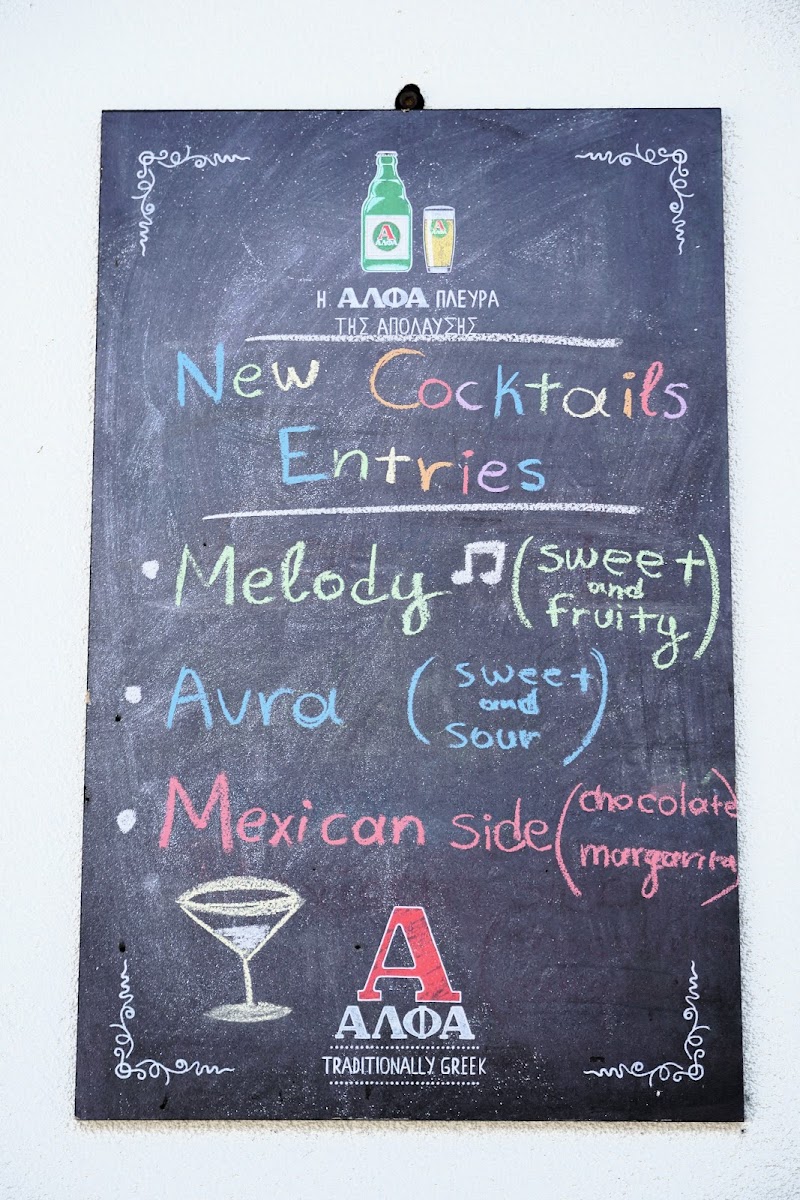 Α
ΑΛΦΑ
Α
ΑΛΦΑ
Η ΑΛΦΑ ΠΛΕΥΡΑ
ΤΗΣ ΑΠΟΛΑΥΣΗΣ
New Cocktails
Entries
Melody (sweet and fruity)
Avra (sweet and sour)
Mexican side (chocolate margarita)
Α
ΑΛΦΑ
TRADITIONALLY GREEK